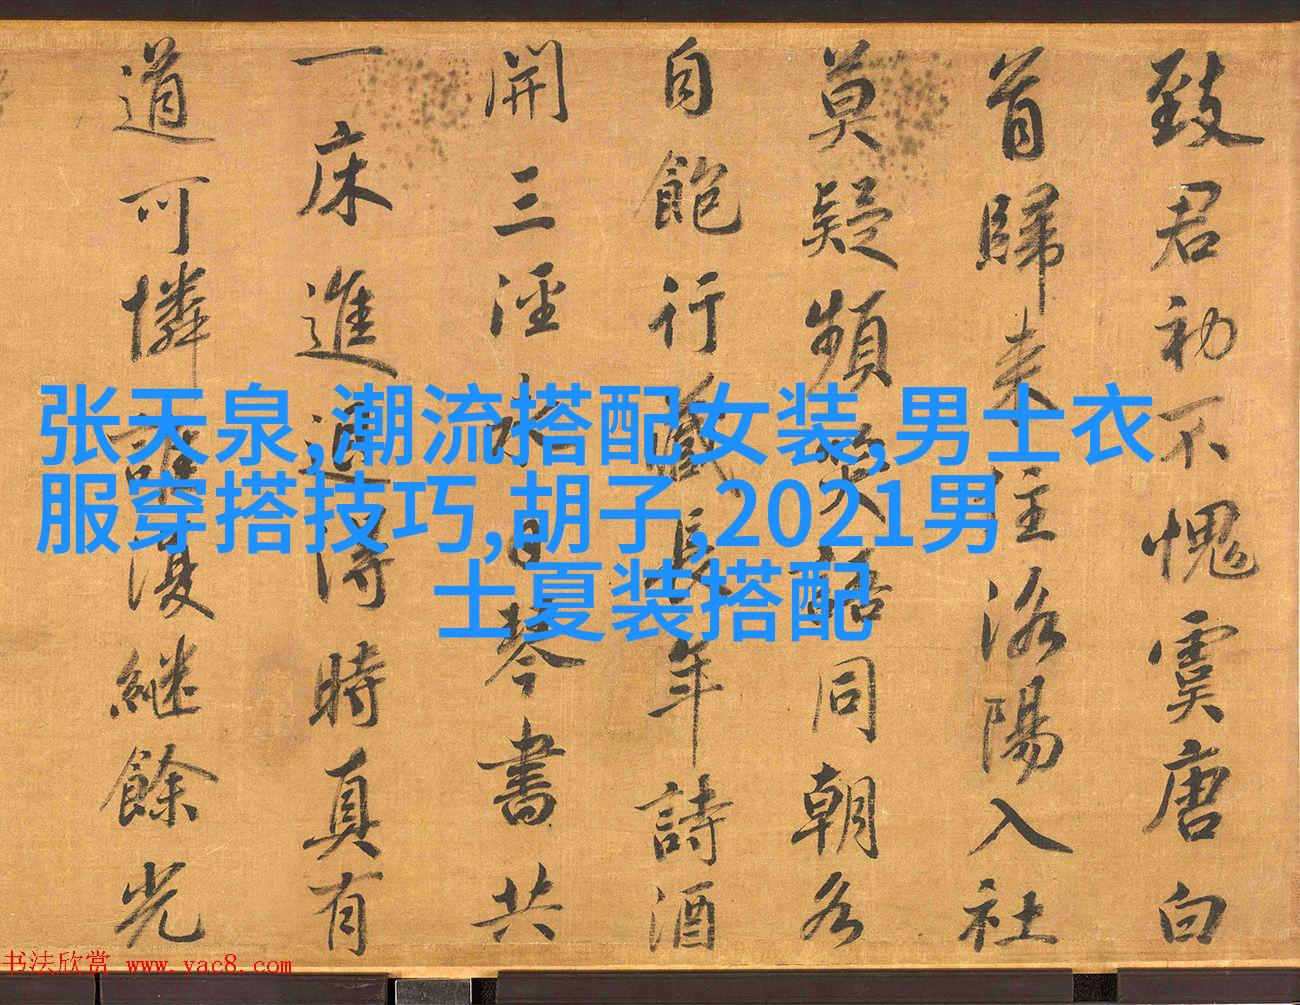 致君初不愧虞唐白
首歸来住洛陽入社
莫疑頻笑語同朝各
自飽行藏長年詩酒
開三涇永日琴書共
一床進退得時真有
道可憐誰復繼餘光
张天泉,潮流搭配女装,男士衣
服穿搭技巧,胡子,2021男
士夏装搭配
书法欣赏 www.yac8.com